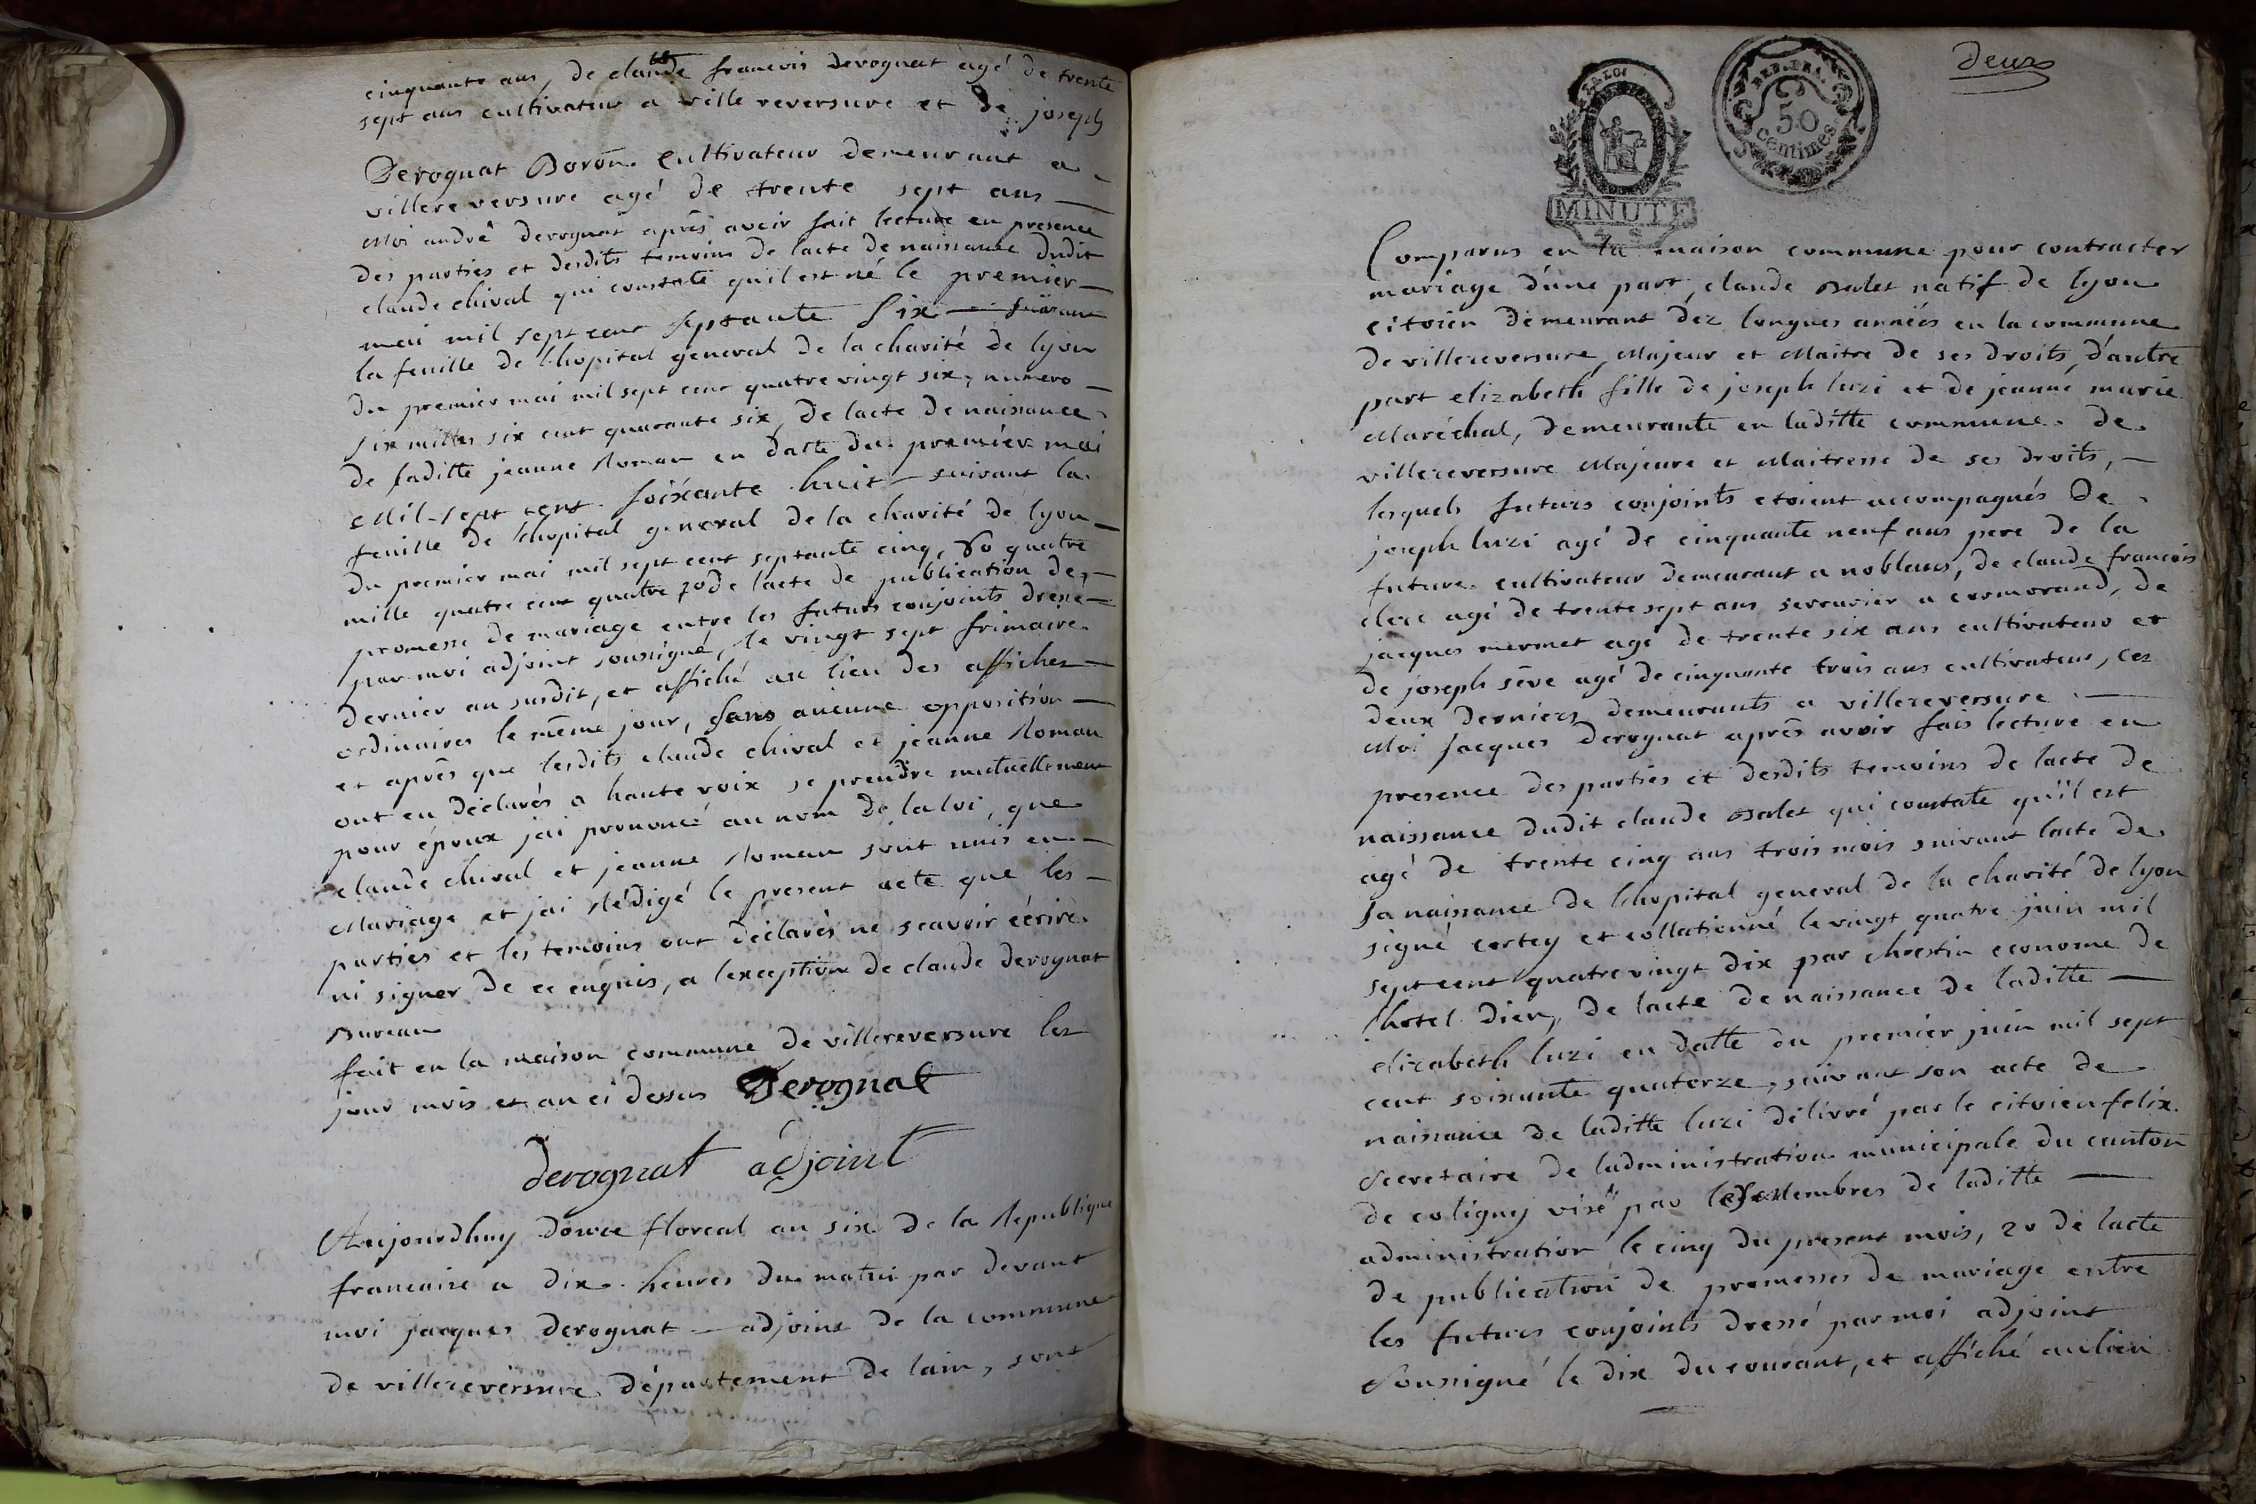 cinquante ans, de claude francois derognat agé de trente
sept ans cultivateur a ville reversure et de joseph
Derognat Boron cultivateur demeurant a
villereversure agé de trente sept ans
Moi andré derognat aprês avoir fait lecture en presence
des parties et desdits temoins de lacte de naissance dudit
claude chival qui constate quil est né le premier
mai mil sept cent septante six suivant
la feuille de lhopital general de la charité de lyon
du premier mai mil sept cent quatre vingt six, numero
six milles six cent quarante six, de lacte de naissance
de laditte jeanne Roman en datte du premier mai
Mil sept cent soixante huit suivant la
feuille de lhopital general de la charité de lyon
du premier mai mil sept cent septante cinq, No quatre
mille quatre cent quatre 20 de lacte de publication de
promesse de mariage entre les futurs conjoints dressé
par moi adjoint soussigné, le vingt sept frimaire
dernier an susdit, et affiché au lieu des affiches
ordinaires le même jour, sans aucune opposition
et aprês que lesdits claude chival et jeanne Roman
ont eu déclarés a haute voix se prendre mutuellement
pour époux jai prononcé au nom de la loi, que
claude chival et jeanne Roman sont unis en
Mariage et jai Rédigé le present acte que les
parties et les temoins ont déclarés ne scavoir écrire
ni signer de ce enquis, a lexception de claude derognat
Bureau
fait en la maison commune de villereversure les
jour mois et an ci dessus Derognat
derognat adjoint
Aujourdhuy douze floreal an six de la Republique
francaise a dix heures du matin par devant
moi jacques derognat adjoint de la commune
de villereversure département de lain, sont
deux
LA LOI
REP. FRA.
50
centimes
MINUTE
Comparus en la maison commune pour contracter
mariage d'une part, claude Balet natif de lyon
citoien demeurant dez longues années en la commune
de villereversure, Majeur et Maitre de ses droits, d'autre
part elizabeth fille de joseph luzi et de jeanne marie
Maréchal, demeurante en laditte commune de
villereversure Majeure et Maitresse de ses droits,
lesquels futurs conjoints etoient accompagnés de
joseph luzi agé de cinquante neuf ans pere de la
future cultivateur demeurant a noblens, de claude francois
clerc agé de trente sept ans serrurier a cormorand, de
jacques mermet agé de trente six ans cultivateur et
de joseph sêve agé de cinquante trois ans cultivateur, ces
deux derniers demeurants a villereversure
Moi Jacques derognat aprês avoir fais lecture en
presence des parties et desdits temoins de lacte de
naissance dudit claude Balet qui constate qu'il est
agé de trente cinq ans trois mois suivant lacte de
sa naissance de lhopital general de la charité de lyon
signé cortey et collationné le vingt quatre juin mil
sept cent quatre vingt dix par chrestin econome de
lhotel dieu, de lacte de naissance de laditte
elizabeth luzi en datte du premier juin mil sept
cent soixante quatorze, suivant son acte de
naissance de laditte luzi délivré par le citoien felix
Secretaire de ladministration municipale du canton
de coligny visé par les Membres de laditte
administration le cinq du present mois, 20 de lacte
de publication de promesses de mariage entre
les futurs conjoints dressé par moi adjoint
Soussigné le dix du courant, et affiché au lieu